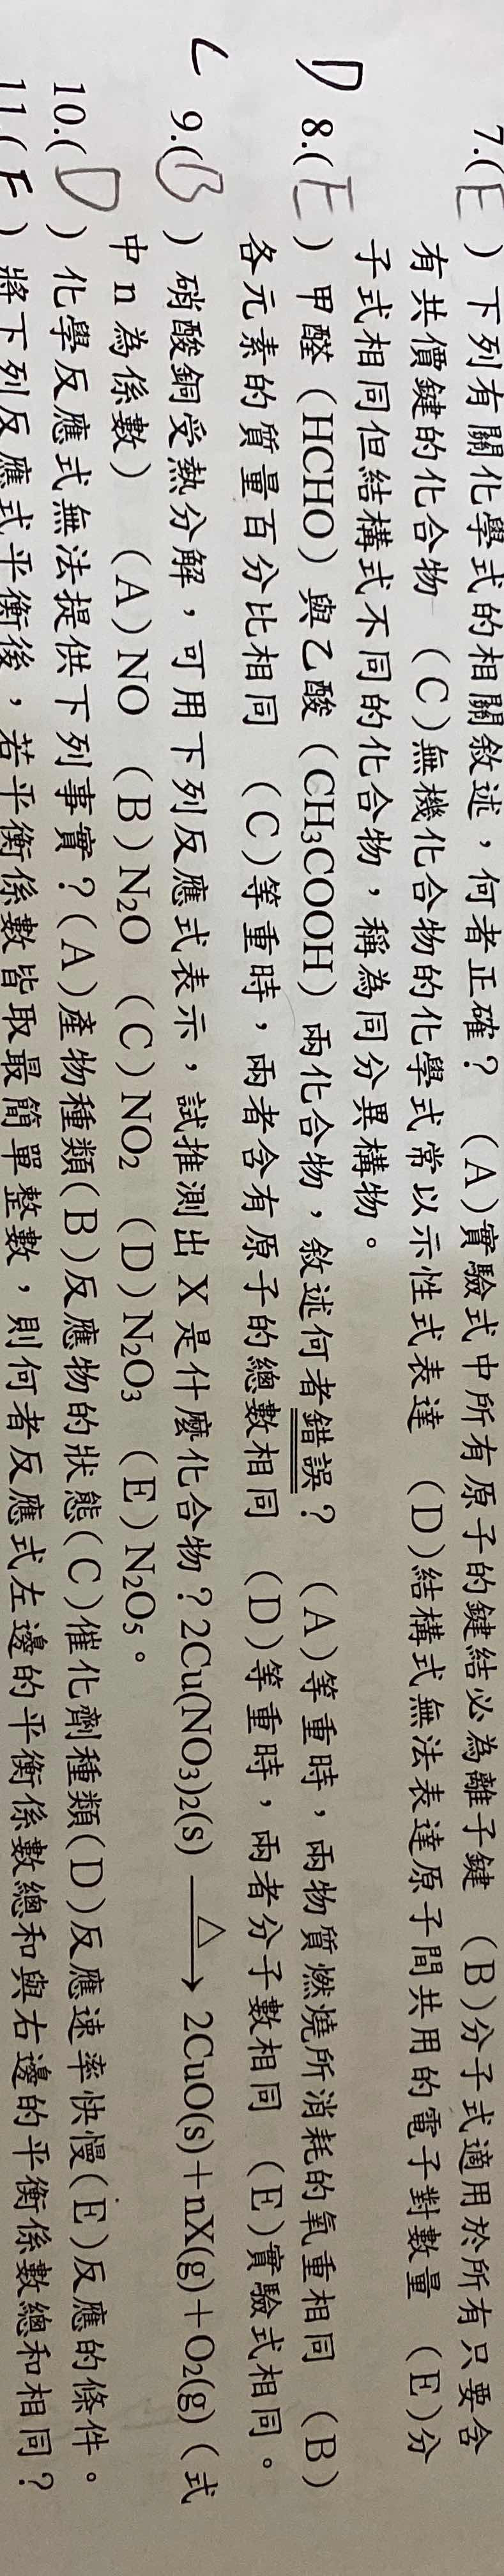 7.(E)下列有關化學式的相關敘述，何者正確？ (A)實驗式中所有原子的鍵結必為離子鍵 (B)分子式適用於所有只要含
有共價鍵的化合物 (C)無機化合物的化學式常以示性式表達 (D)結構式無法表達原子間共用的電子對數量 (E)分
子式相同但結構式不同的化合物，稱為同分異構物。
D 8.(E)甲醛（HCHO）與乙酸（CH₃COOH）兩化合物，敘述何者錯誤？ (A)等重時，兩物質燃燒所消耗的氧重相同 (B)
各元素的質量百分比相同 (C)等重時，兩者含有原子的總數相同 (D)等重時，兩者分子數相同 (E)實驗式相同。
C 9.(B)硝酸銅受熱分解，可用下列反應式表示，試推測出 X 是什麼化合物？2Cu(NO₃)₂(s) —△→ 2CuO(s)＋nX(g)＋O₂(g)（式
中 n 為係數） (A)NO (B)N₂O (C)NO₂ (D)N₂O₃ (E)N₂O₅。
10.(D)化學反應式無法提供下列事實？(A)產物種類(B)反應物的狀態(C)催化劑種類(D)反應速率快慢(E)反應的條件。
11.(F)將下列反應式平衡後，若平衡係數皆取最簡單整數，則何者反應式左邊的平衡係數總和與右邊的平衡係數總和相同？